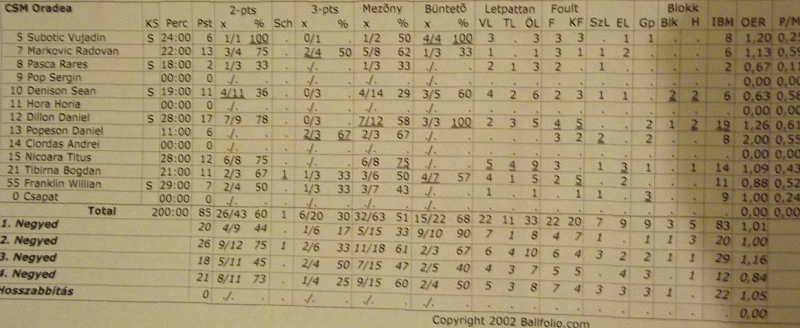 CSM Oradea 2-pts 3-pts Mezőny Büntető Letpattan Foult Blokk
KS Perc Pst x % Sch x % x % x % VL TL ÖL F KF SzL EL Gp Blk H IBM OER P/M
5 Subotic Vujadin S 24:00 6 1/1 100 . 0/1 . 1/2 50 4/4 100 3 . 3 3 3 . 1 1 . . 8 1,20 0,25
7 Markovic Radovan 22:00 13 3/4 75 . 2/4 50 5/8 62 1/3 33 1 . 1 3 1 1 2 . . . 6 1,13 0,59
8 Pasca Rares S 18:00 2 1/3 33 . ./. . 1/3 33 ./. . 2 1 3 2 . 1 . . . . 2 0,67 0,11
9 Pop Sergin 00:00 0 ./. . . ./. . ./. . ./. . . . . . . . . . . . . 0,00 0,00
10 Denison Sean S 19:00 11 4/11 36 . 0/3 . 4/14 29 3/5 60 4 2 6 2 3 1 1 . 2 2 6 0,63 0,58
11 Hora Horia 00:00 0 ./. . . ./. . ./. . ./. . . . . . . . . . . . . 0,00 0,00
12 Dillon Daniel S 28:00 17 7/9 78 . 0/3 . 7/12 58 3/3 100 2 3 5 4 5 . . 2 1 2 19 1,26 0,61
13 Popeson Daniel 11:00 6 ./. . . 2/3 67 2/3 67 ./. . . . . 3 2 2 . 2 . . 8 2,00 0,55
14 Ciordas Andrei 00:00 0 ./. . . ./. . ./. . ./. . . . . . . . . . . . . 0,00 0,00
15 Nicoara Titus 28:00 12 6/8 75 . ./. . 6/8 75 ./. . 5 4 9 3 . 1 3 1 . 1 14 1,09 0,43
21 Tibirna Bogdan 21:00 11 2/3 67 1 1/3 33 3/6 50 4/7 57 4 1 5 2 5 . 2 . . . 11 0,88 0,52
55 Franklin Willian S 29:00 7 2/4 50 . 1/3 33 3/7 43 ./. . 1 . 1 . 1 . . 3 . . 9 1,00 0,24
0 Csapat 00:00 0 ./. . . ./. . ./. . ./. . . . . . . . . . . . . 0,00 0,00
Total 200:00 85 26/43 60 1 6/20 30 32/63 51 15/22 68 22 11 33 22 20 7 9 9 3 5 83 1,01
1. Negyed 20 4/9 44 . 1/6 17 5/15 33 9/10 90 7 1 8 4 7 1 . 1 1 3 20 1,00
2. Negyed 26 9/12 75 1 2/6 33 11/18 61 2/3 67 6 4 10 6 4 3 2 2 1 1 29 1,16
3. Negyed 18 5/11 45 . 2/4 50 7/15 47 2/5 40 4 3 7 5 5 . 4 3 . 1 12 0,84
4. Negyed 21 8/11 73 . 1/4 25 9/15 60 2/4 50 5 3 8 7 4 3 3 3 1 . 22 1,05
Hosszabbítás 0 ./. . . ./. . ./. . ./. . . . . . . . . . . . . 0,00
Copyright 2002 Ballfolio.com